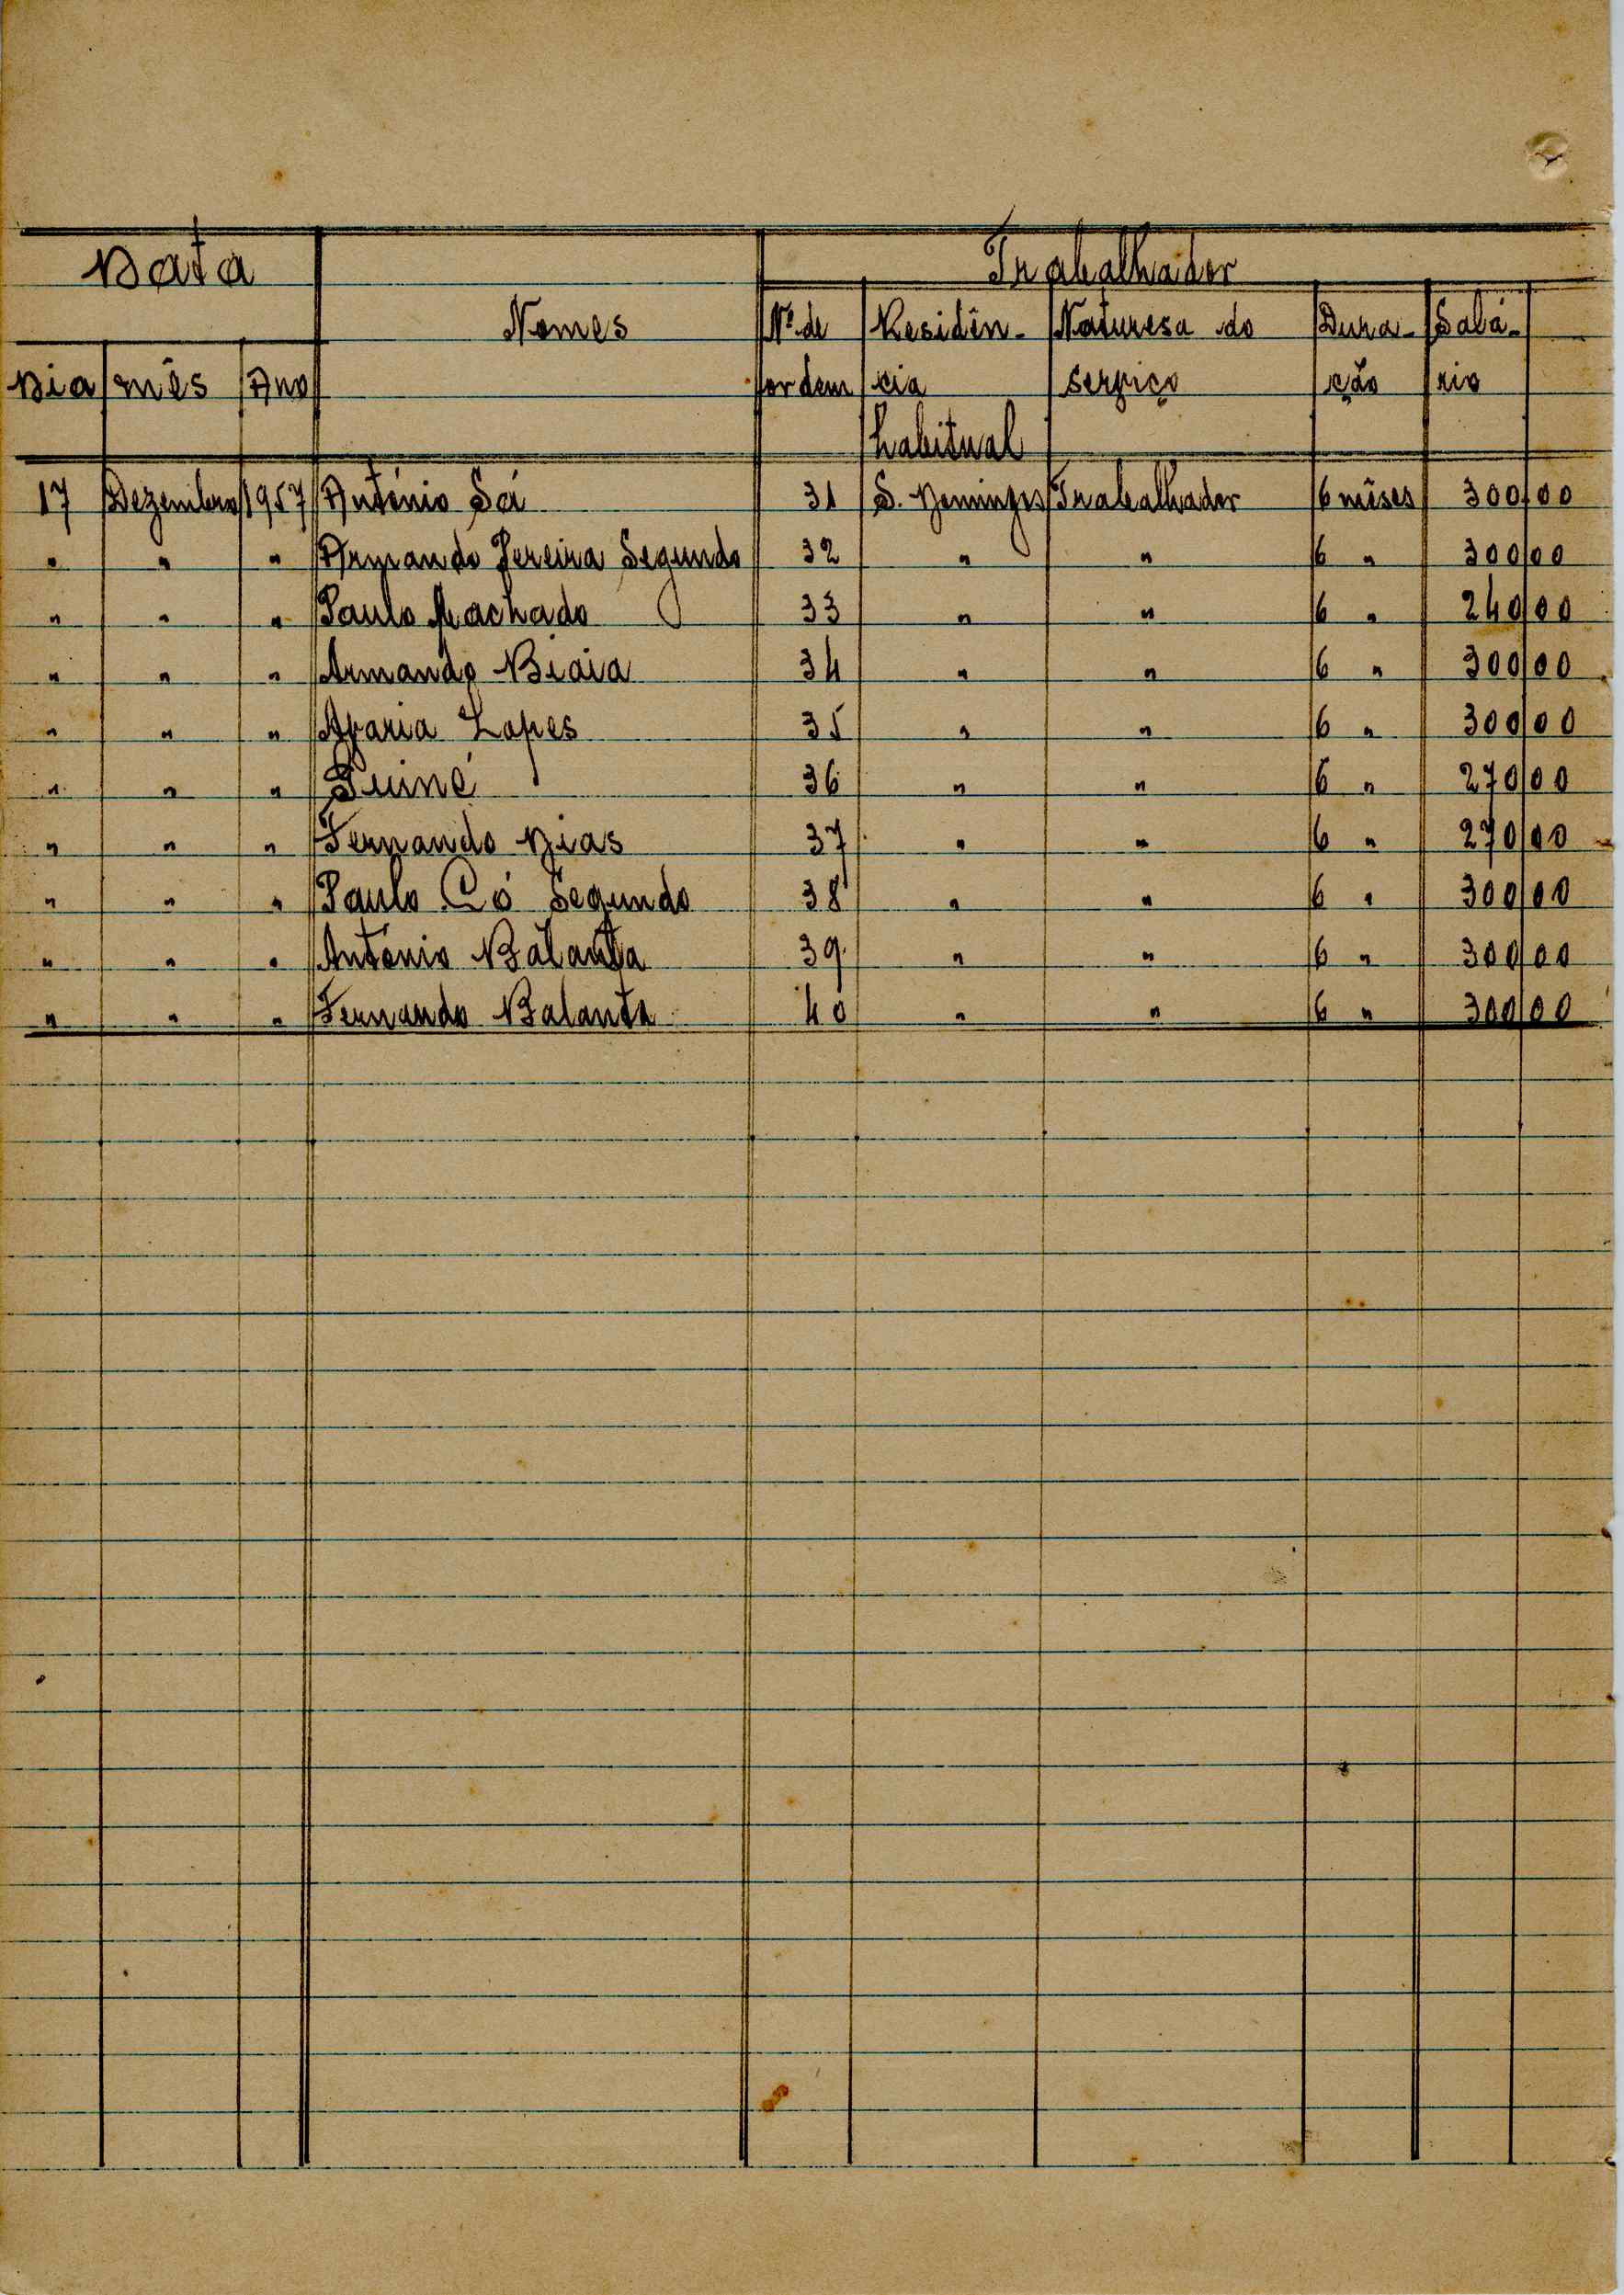 Data Trabalhador
Nomes Nº de Residên- Naturesa do Dura- Salá-
Dia mês Ano ordem cia serviço ção rio
habitual
17 Dezembro 1957 António Sá 31 S. Domingos Trabalhador 6 mêses 300,00
" " " Armando Pereira Segundo 32 " " 6 " 300,00
" " " Paulo Machado 33 " " 6 " 240,00
" " " Armando Biaia 34 " " 6 " 300,00
" " " Lopes 35 " " 6 " 300,00
" " " 36 " " 6 " 270,00
" " " Fernando Dias 37 " " 6 " 270,00
" " " Paulo Có Segundo 38 " " 6 " 300,00
" " " António Balanta 39 " " 6 " 300,00
" " " Fernando Balanta 40 " " 6 " 300,00